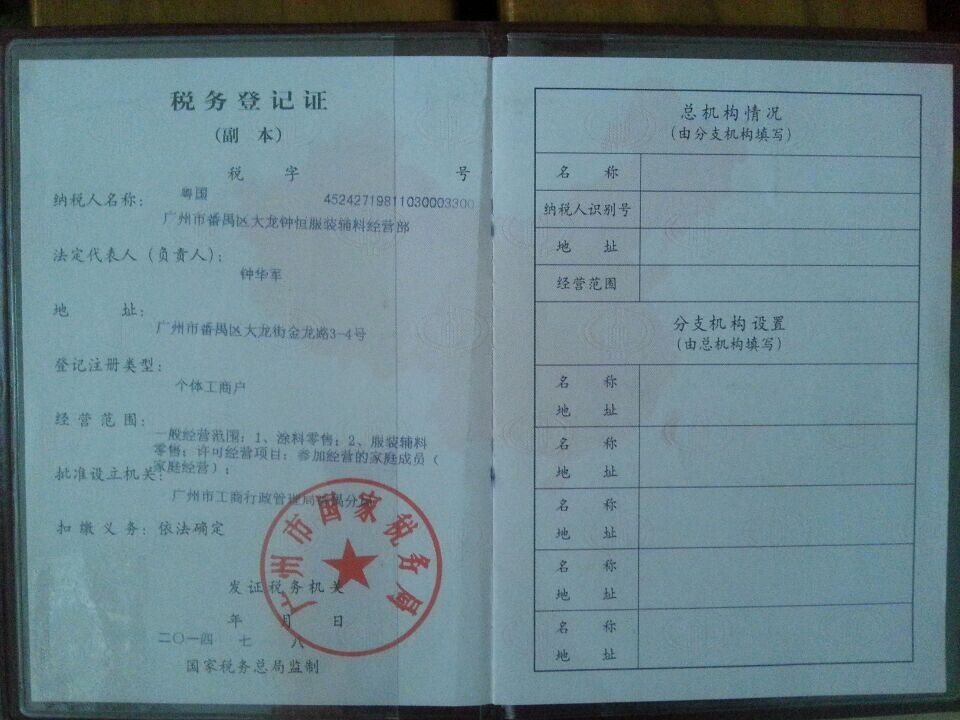 税务登记证
(副 本)
税 字 号
粤国 45242719811030003300
纳税人名称:
广州市番禺区大龙钟恒服装辅料经营部
法定代表人(负责人):
钟华军
地 址:
广州市番禺区大龙街金龙路3-4号
登记注册类型:
个体工商户
经营范围:
一般经营范围:1、涂料零售;2、服装辅料
零售;许可经营项目:参加经营的家庭成员(
家庭经营);
批准设立机关:
广州市工商行政管理局番禺分局
扣缴义务:依法确定
广州市国家税务局
发证税务机关
年 月 日
二〇一四 七 八
国家税务总局监制
总机构情况
(由分支机构填写)
名 称
纳税人识别号
地 址
经营范围
分支机构设置
(由总机构填写)
名 称
地 址
名 称
地 址
名 称
地 址
名 称
地 址
名 称
地 址